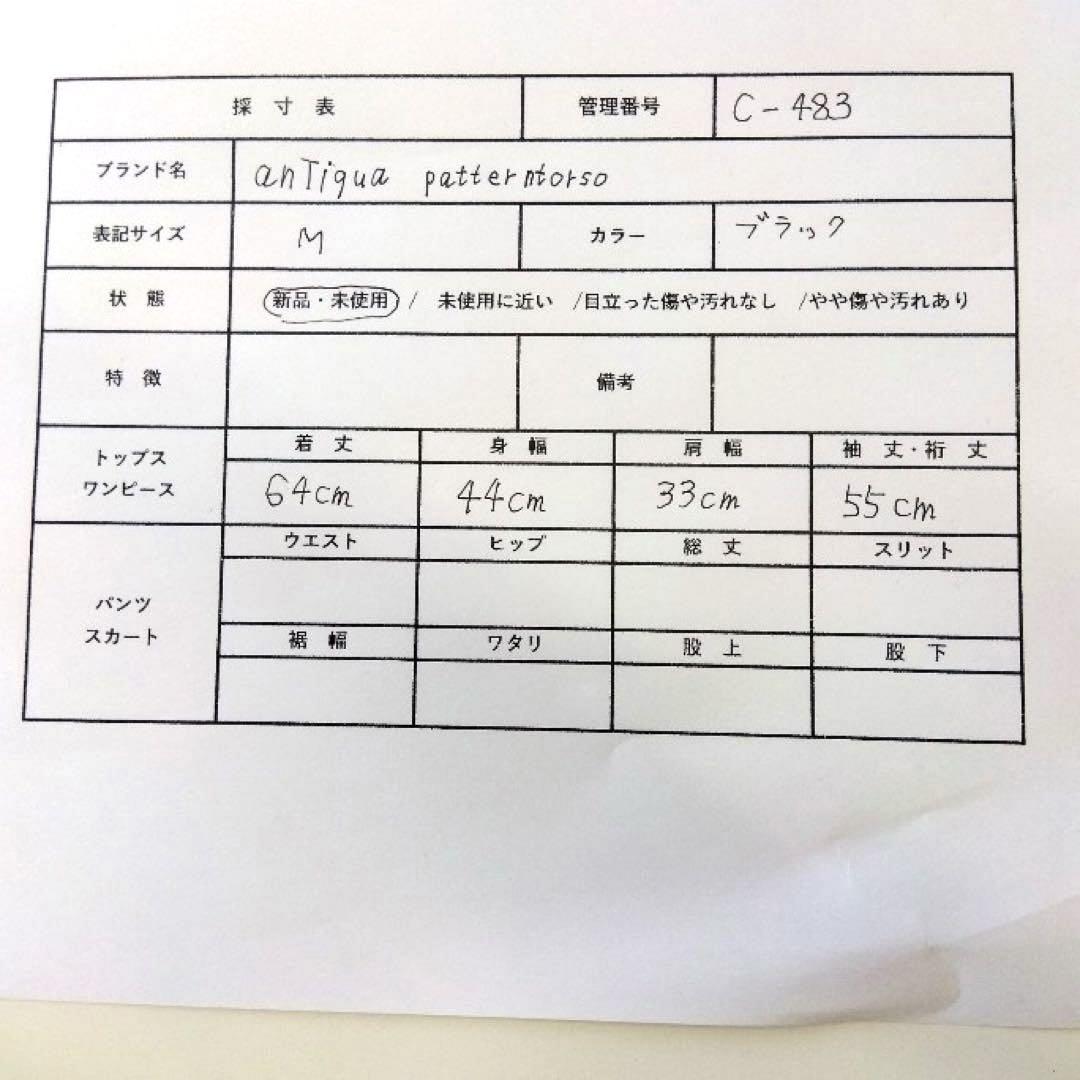 採寸表 管理番号 C-483
ブランド名 anTiqua patterntorso
表記サイズ M カラー ブラック
状態 新品・未使用 / 未使用に近い /目立った傷や汚れなし /やや傷や汚れあり
特徴 備考
トップス
ワンピース
着丈 身幅 肩幅 袖丈・裄丈
64cm 44cm 33cm 55cm
パンツ
スカート
ウエスト ヒップ 総丈 スリット
裾幅 ワタリ 股上 股下